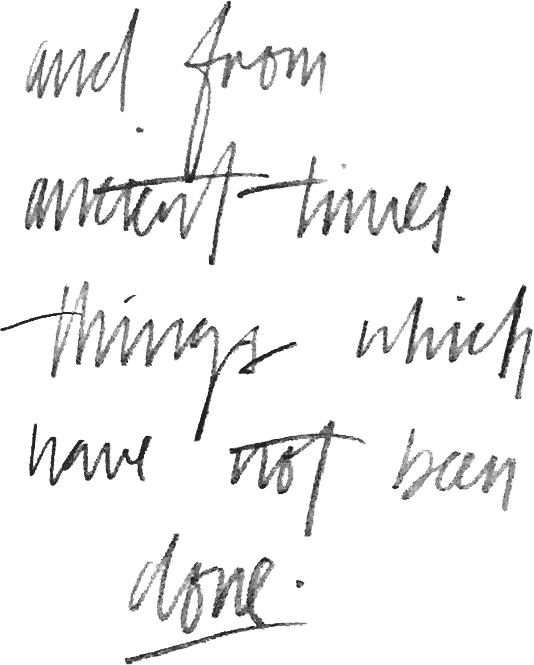 and from
ancient times
things which
have not been
done.